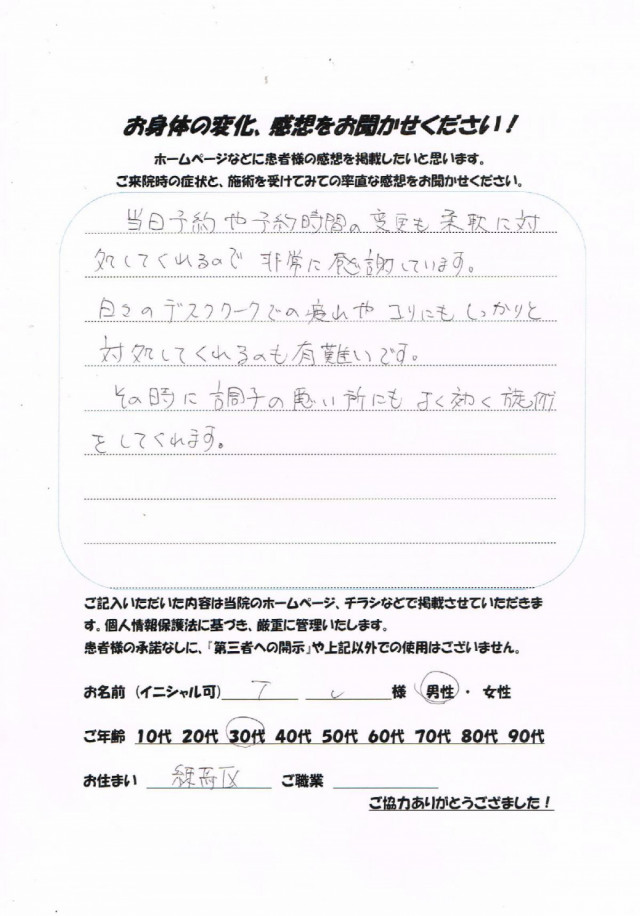 お身体の変化、感想をお聞かせください！
ホームページなどに患者様の感想を掲載したいと思います。
ご来院時の症状と、施術を受けてみての率直な感想をお聞かせください。
当日予約や予約時間の変更も柔軟に対
処してくれるので非常に感謝しています。
日々のデスクワークでの疲れやコリにもしっかりと
対処してくれるのも有難いです。
その時に調子の悪い所にもよく効く施術
をしてくれます。
ご記入いただいた内容は当院のホームページ、チラシなどで掲載させていただきま
す。個人情報保護法に基づき、厳重に管理いたします。
患者様の承諾なしに、「第三者への開示」や上記以外での使用はございません。
お名前（イニシャル可） 様 男性・女性
ご年齢 10代 20代 30代 40代 50代 60代 70代 80代 90代
お住まい 練馬区 ご職業
ご協力ありがとうござました！